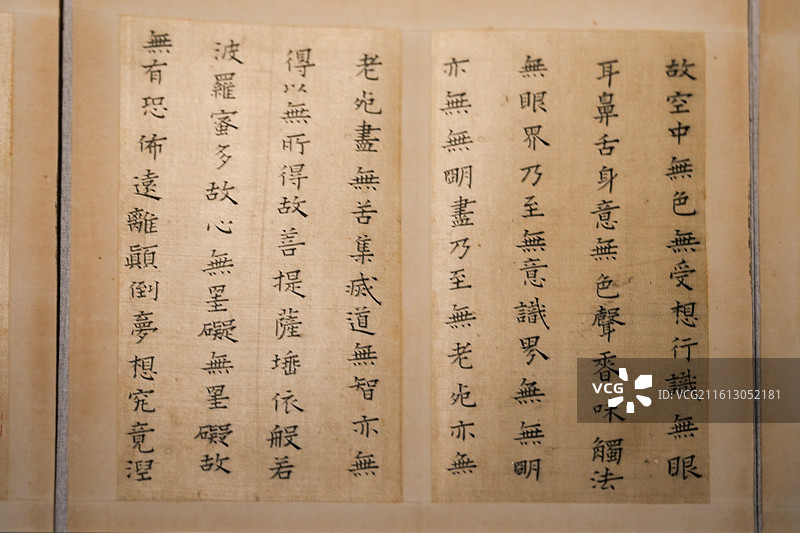 故空中無色無受想行識無眼
耳鼻舌身意無色聲香味觸法
無眼界乃至無意識界無無明
亦無無明盡乃至無老死亦無
老死盡無苦集滅道無智亦無
得以無所得故菩提薩埵依般若
波羅蜜多故心無罣礙無罣礙故
無有恐怖遠離顛倒夢想究竟涅
VCG
ID:VCG211613052181